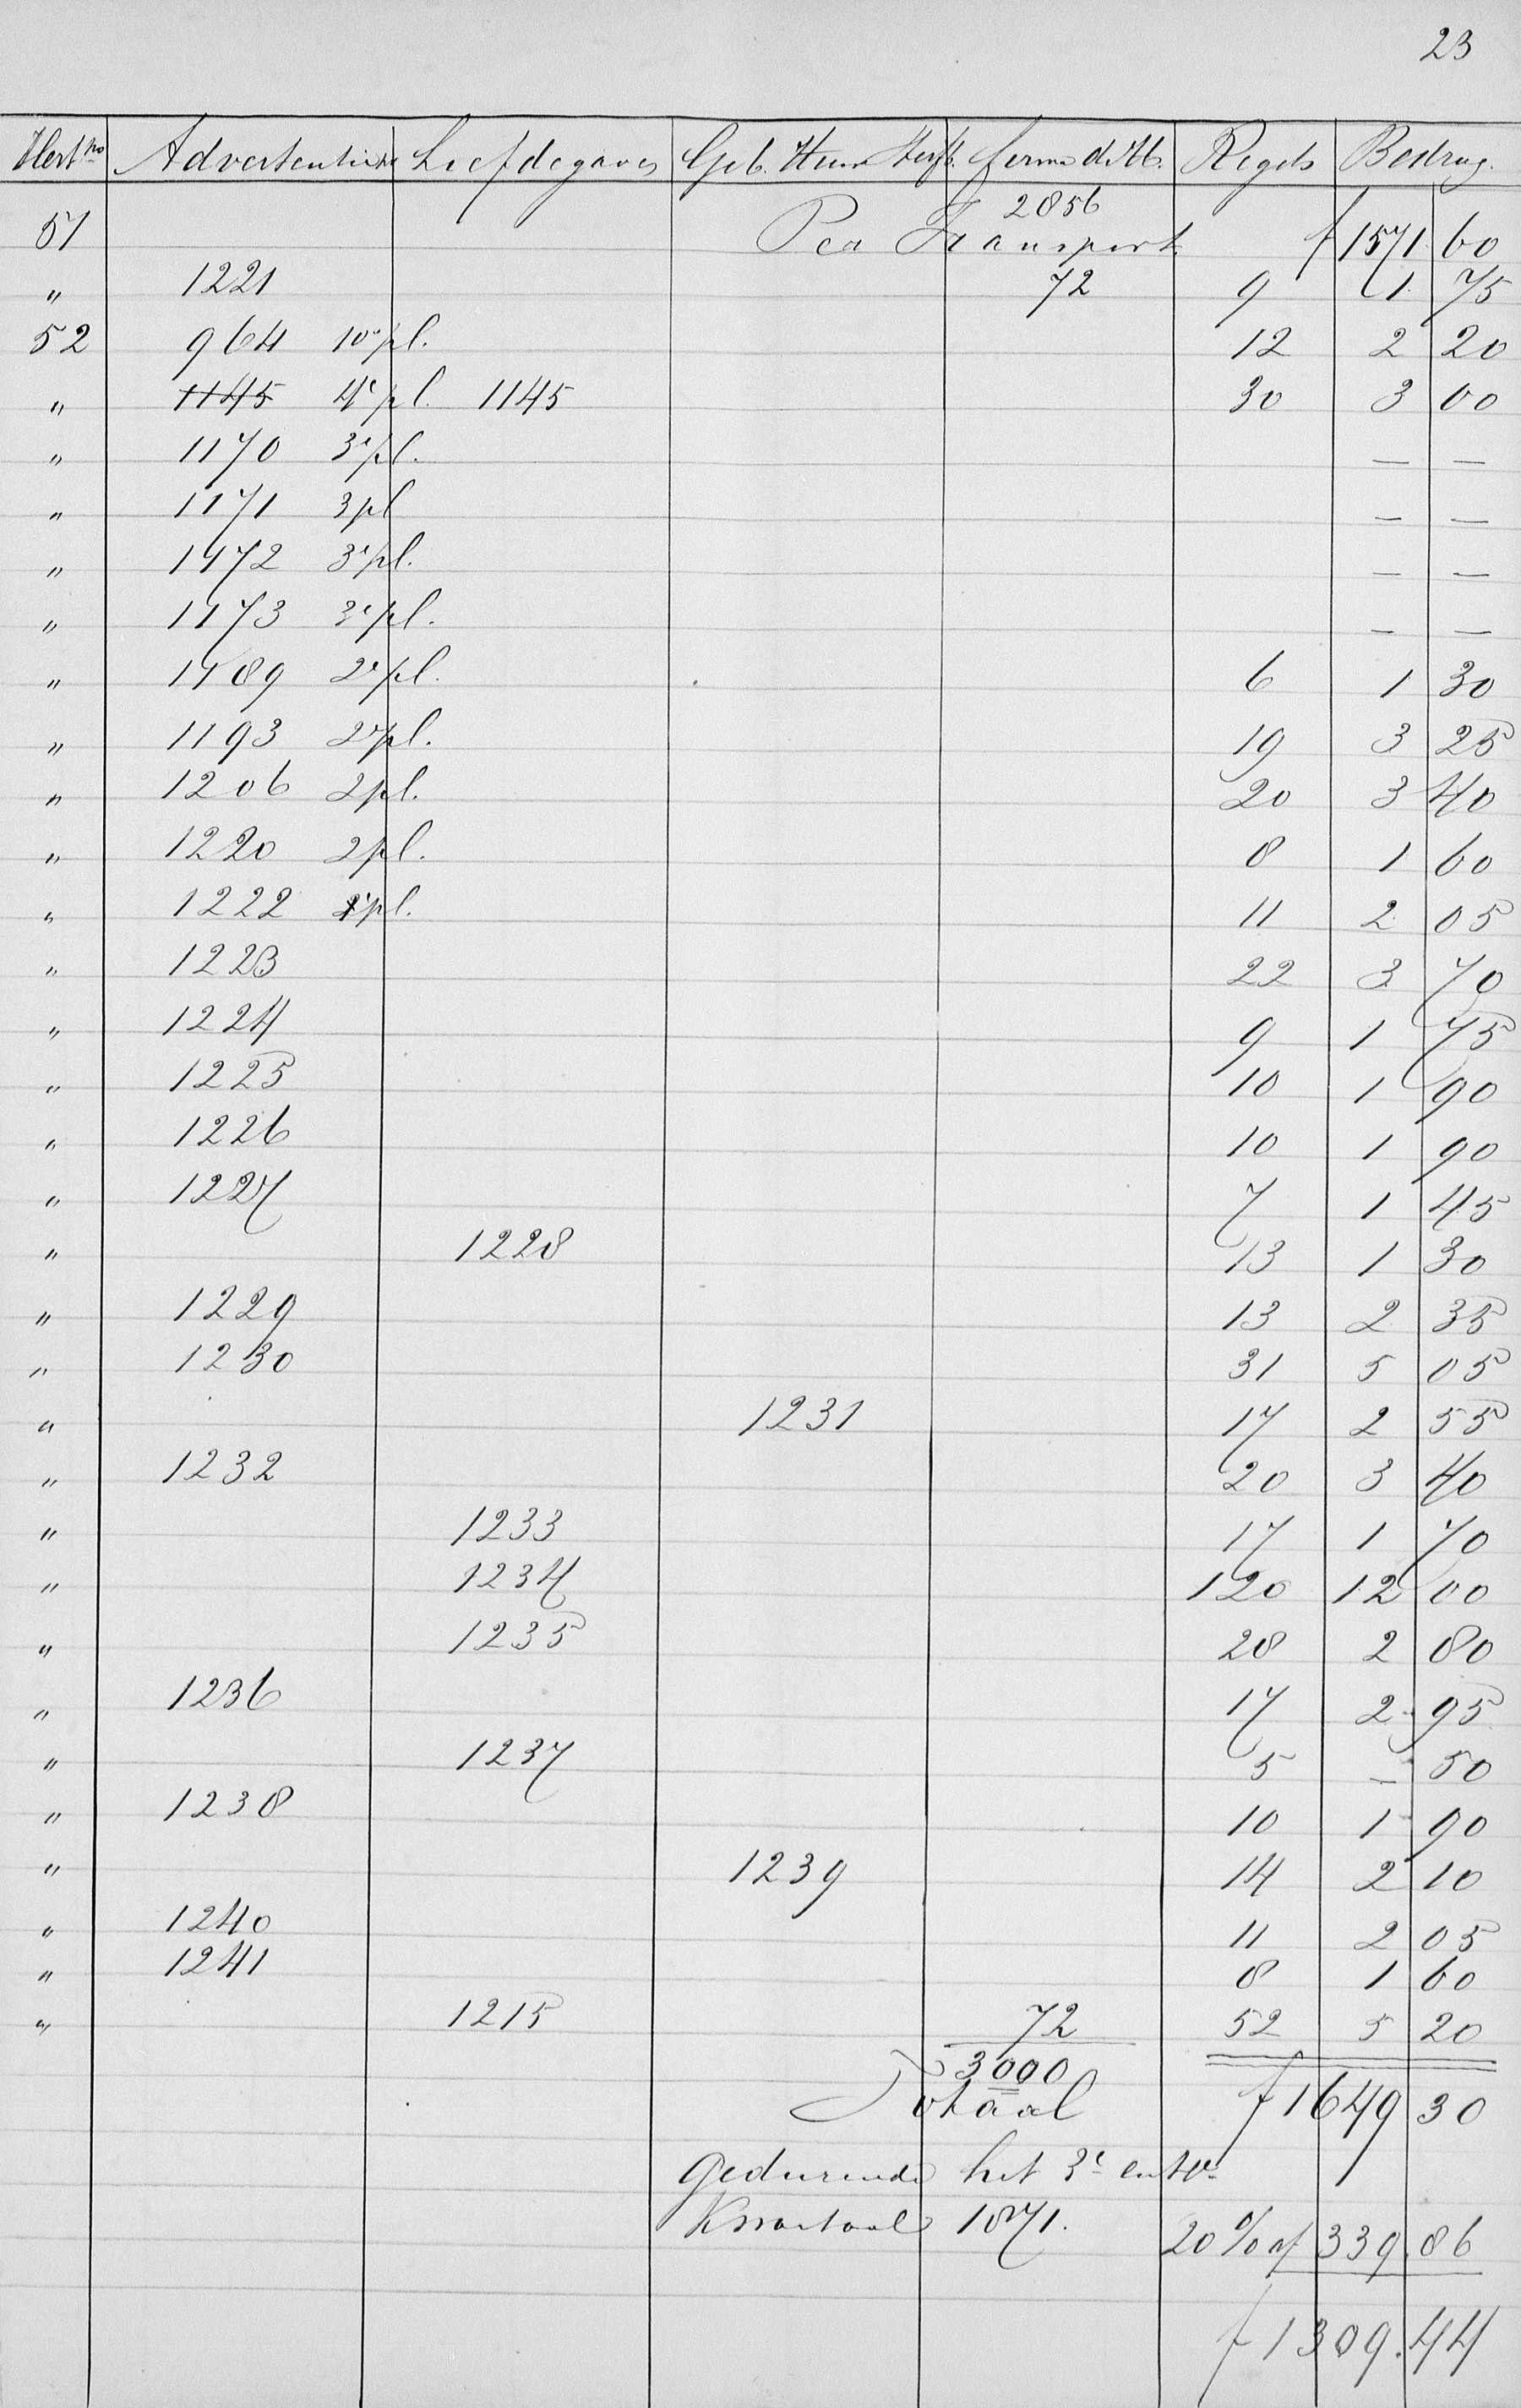 23
Hert no Advertentien Liefdegaven Geb. Huw Sterfb. ferme d. Ab. Regels Bedrag.
2856
51 Per Transport. f 1571 60
" 1221 72 9 1 75
52 964 10e pl. 12 2 20
" 1145 4e pl. 1145 30 3 00
" 1170 3e pl. — —
" 1171 3 pl — —
" 1172 3e pl. — —
" 1173 3e pl. — —
" 1189 2e pl. 6 1 30
" 1193 2e pl. 19 3 25
" 1206 2 pl. 20 3 40
" 1220 2 pl. 8 1 60
" 1222 2e pl. 11 2 05
" 1223 22 3 70
" 1224 9 1 75
" 1225 10 1 90
" 1226 10 1 90
" 1227 7 1 45
" 1228 13 1 30
" 1229 13 2 35
" 1230 31 5 05
" 1231 17 2 55
" 1232 20 3 40
" 1233 17 1 70
" 1234 120 12 00
" 1235 28 2 80
" 1236 17 2 95
" 1237 5 — 50
" 1238 10 1 90
" 1239 14 2 10
" 1240 11 2 05
" 1241 8 1 60
" 1215 72 52 5 20
3000
Totaal f 1649 30
gedurende het 3e en 4e
Kwartaal 1871.
20 % af 339.86
f 1309.44